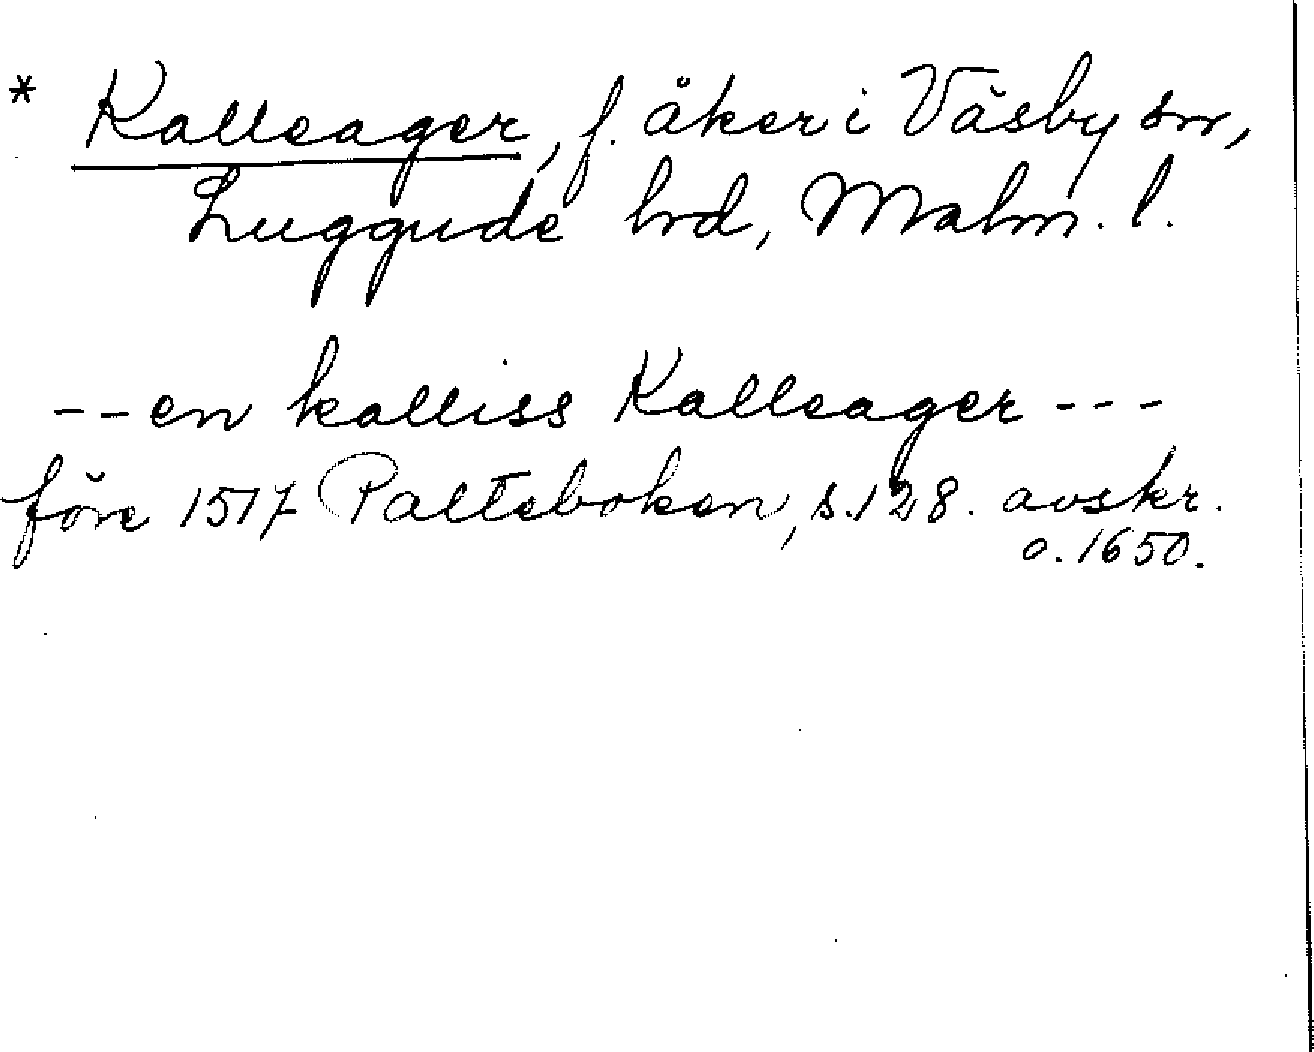 * Kalleager, f. åker i Väsby sn,
Luggude hd, Malm. l.
-- en kalliss Kalleager ---
före 1517 Palteboken, s. 128. avskr.
o. 1650.